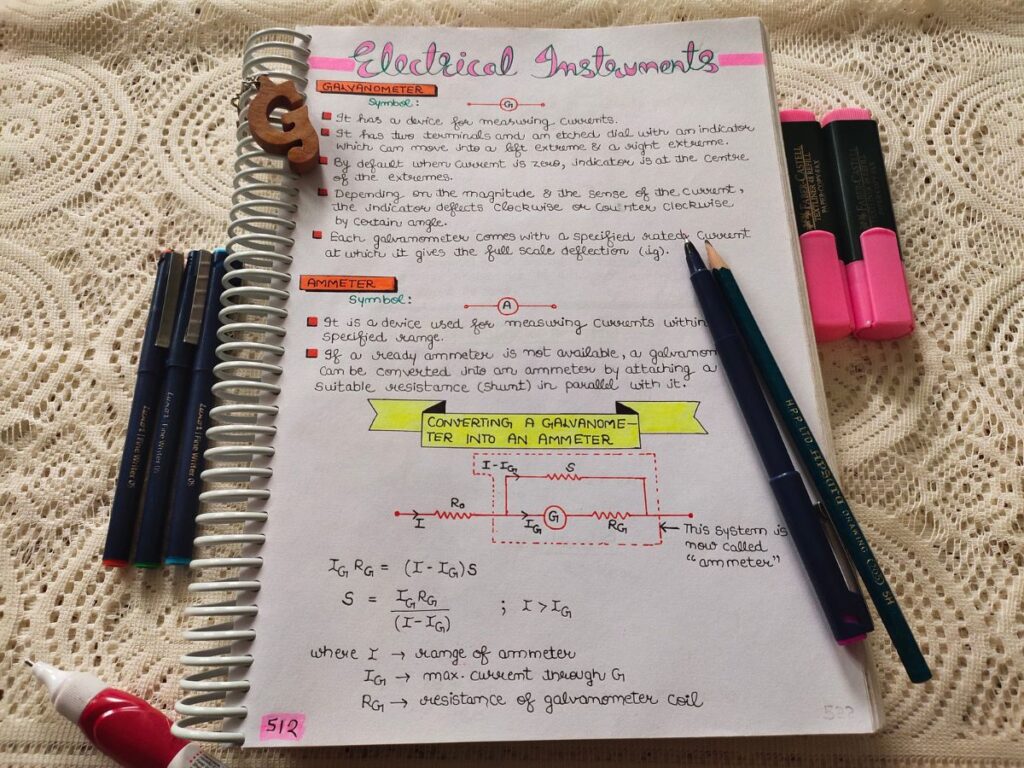 Electrical Instruments
GALVANOMETER
Symbol:
G
It has a device for measuring currents.
It has two terminals and an etched dial with an indicator
which can move into a left extreme & a right extreme.
By default when current is zero, indicator is at the centre
of the extremes.
Depending on the magnitude & the sense of the current,
the indicator deflects clockwise or counter clockwise
by certain angle.
Each galvanometer comes with a specified rated current
at which it gives the full scale deflection (ig).
AMMETER
Symbol:
A
It is a device used for measuring currents within
specified range.
If a ready ammeter is not available, a galvanom
can be converted into an ammeter by attaching a
suitable resistance (shunt) in parallel with it.
CONVERTING A GALVANOME-
TER INTO AN AMMETER
I-IG S
I R0 IG G RG
This system is
now called
"ammeter"
IG RG = (I-IG)S
S = IG RG / (I-IG) ; I > IG
where I → range of ammeter
IG → max. current through G
RG → resistance of galvanometer coil
512
Luxor Fine Writer 05
Luxor Fine Writer 05
FABER-CASTELL
TEXTLINER
HPP LTD APSARA DRAWING 5H